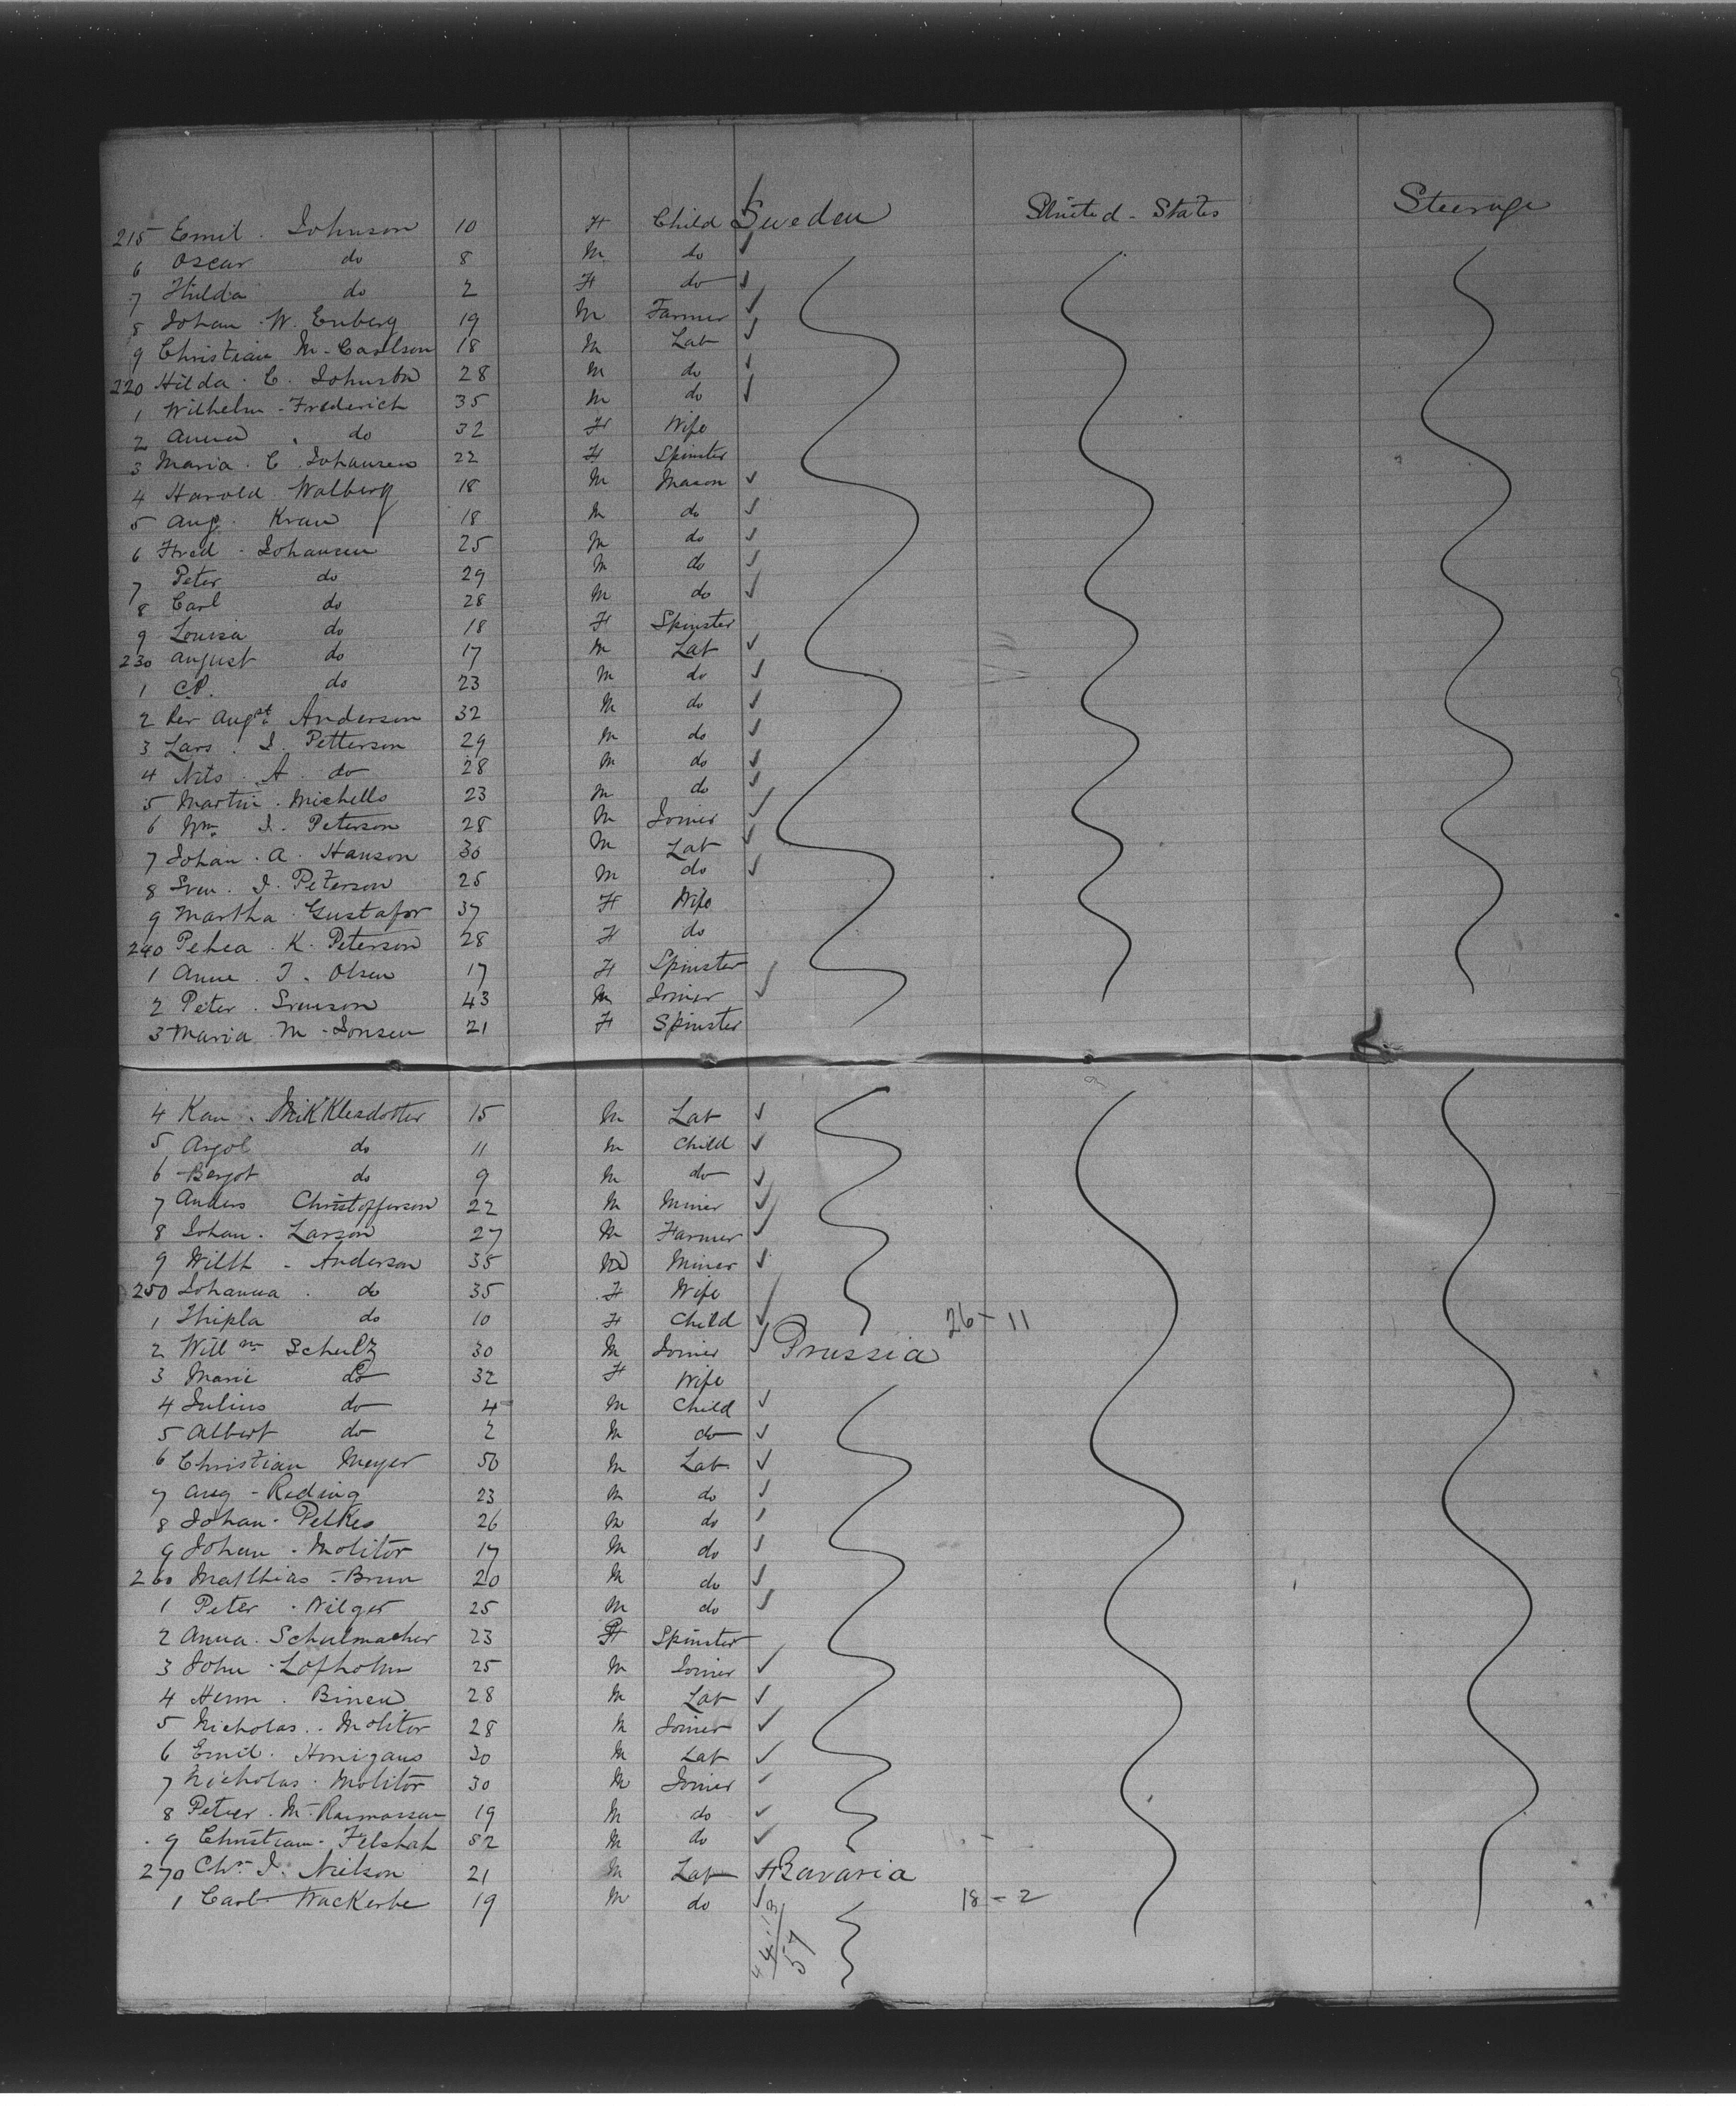 215 Emil . Johnson 10 F Child Sweden United - States Steerage
6 Oscar do 8 M do
7 Hulda do 2 F do
8 Johan . W. Enberg 19 M Farmer
9 Christian M - Carlson 18 M Lab
220 Hilda . C. Johnson 28 M do
1 Wilhelm - Frederich 35 M do
2 Anna . do 32 F Wife
3 Maria . C . Johansen 22 F Spinster
4 Harold Walberg 18 M Mason
5 Aug. Kran 18 M do
6 Fred - Johansen 25 M do
7 Peter do 29 M do
8 Carl do 28 M do
9 Louisa do 18 F Spinster
230 August do 17 M Lab
1 C.P. do 23 M do
2 Per Augst Anderson 32 M do
3 Lars . J. Petterson 29 M do
4 Nils . A . do 28 M do
5 Martin . Michells 23 M do
6 Wm. J. Peterson 28 M Joiner
7 Johan . A . Hanson 30 M Lab
8 Sven . J. Peterson 25 M do
9 Martha . Gustafor 37 F Wife
240 Pehea . K. Peterson 28 F do
1 Anne . J . Olsen 17 F Spinster
2 Peter . Svenson 43 M Joiner
3 Maria . M - Jonsen 21 F Spinster
4 Kan . Mikklesdotter 15 M Lab
5 Argol do 11 M Child
6 Bergot do 9 M do
7 Anders Christofferson 22 M Miner
8 Johan . Larson 27 M Farmer
9 Willh - Anderson 35 M Miner
250 Johanna . do 35 F Wife
1 Thipla do 10 F Child 26 - 11
2 Willm Schulz 30 M Joiner Prussia
3 Marie do 32 F Wife
4 Julius do 4 M Child
5 Albert do 2 M do
6 Christian Meyer 50 M Lab
7 Aug - Reding 23 M do
8 Johan - Pelkes 26 M do
9 Johan - Molitor 17 M do
260 Matthias - Brun 20 M do
1 Peter . Nilger 25 M do
2 Anna . Schulmacher 23 F Spinster
3 John - Lofholm 25 M Joiner
4 Herm . Binen 28 M Lab
5 Nicholas . . Molitor 28 M Joiner
6 Emil . Honigans 30 M Lab
7 Nicholas . Molitor 30 M Joiner
8 Petver . M . Rasmassen 19 M do
9 Christian - Felshah 52 M do
270 Chr. J. Nielson 21 M Lab Bavaria
1 Carl Wackerbe 19 M do 18 - 2
44 13
57